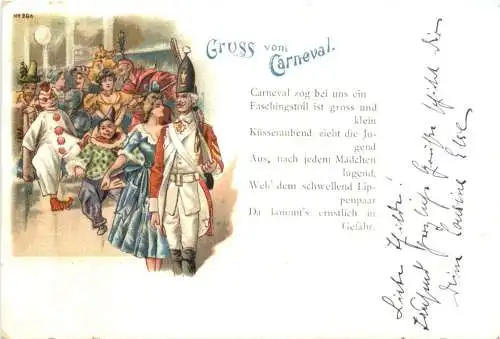 No 264
Gruss vom
Carneval.
Carneval zog bei uns ein
Faschingstoll ist gross und
klein
Küsseraubend zieht die Ju-
gend
Aus, nach jedem Mädchen
lugend,
Weh' dem schwellend Lip-
penpaar
Da kommt's ernstlich in
Gefahr.
Liebe Hilde!
Tausend herzliche Grüße schickt dir
deine Cousine Else